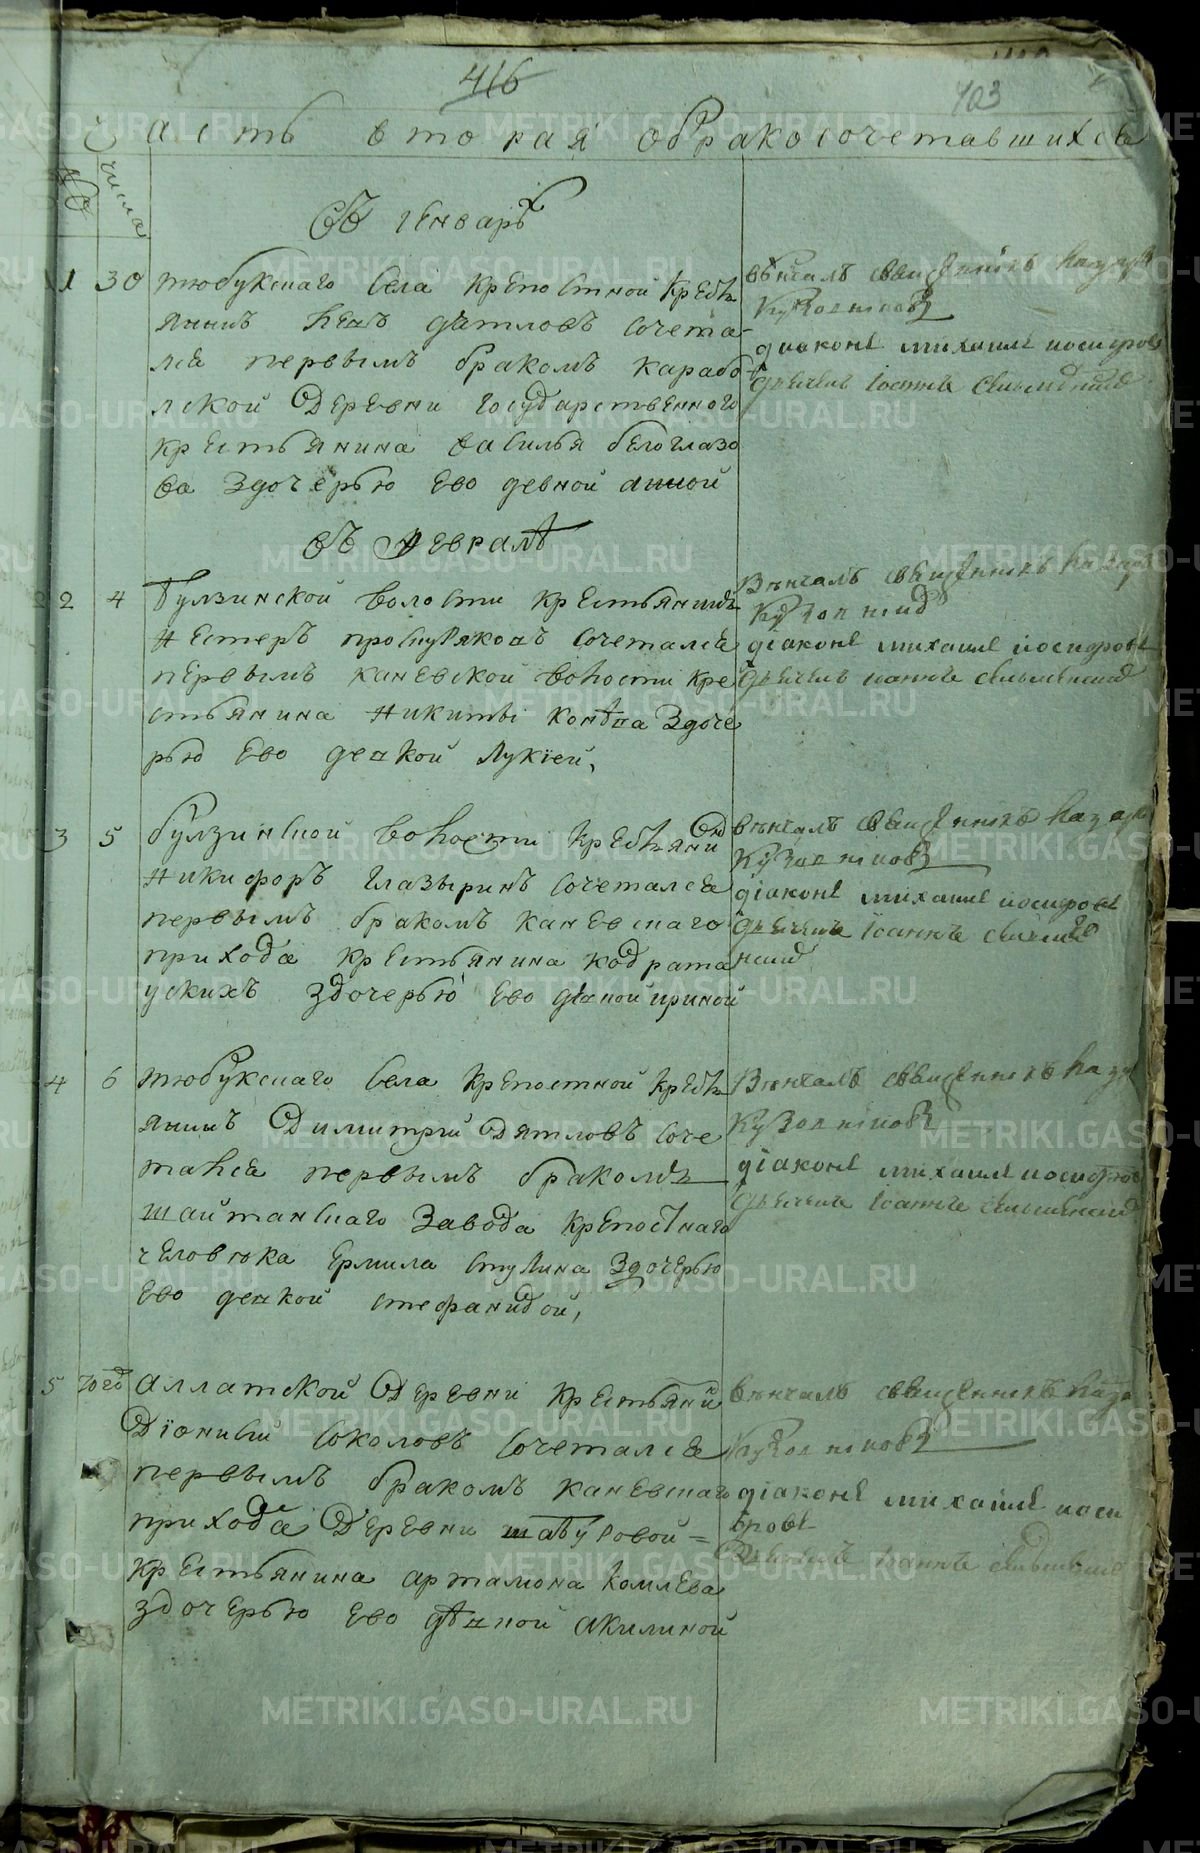 416
403
Часть вторая обракосочетавшихся
№
числа
въ генварѣ
1 30 тюбукскаго села крепостной кресть
янинъ дятловъ сочета
лся первымъ бракомъ карабо
лской деревни государственного
крестьянина василья белоглазо
ва здочерью ево девкой анной
венчалъ священникъ назаръ
Кузовниковъ
диаконъ михаилъ
дьячекъ иоаннъ
въ февралѣ
2 4 булзинской волости крестьянинъ
нестеръ сочетался
первымъ каневской волости кре
стьянина никиты здоче
рью ево девкой лукіей,
венчалъ священникъ назаръ
діаконъ михаилъ
дьячекъ иоаннъ
3 5 булзинской волости крестьяни
никифоръ глазыринъ сочетался
первымъ бракомъ каневскаго
прихода крестьянина кодрата
ускихъ здочерью ево девкой ириной
венчалъ священникъ назаръ
Кузовниковъ
діаконъ михаилъ
дьячекъ іоаннъ
4 6 тюбукскаго села крепостной кресть
янинъ димитрий дятловъ соче
тался первымъ бракомъ
шайтанскаго завода крепостнаго
человека ермила здочерью
ево девкой стефанидой,
венчалъ священникъ
Кузовниковъ
діаконъ михаилъ
дьячекъ іоаннъ
5 аллатской деревни крестьяни
діонисий соколовъ сочетался
первымъ бракомъ каневскаго
прихода деревни шабуровой
крестьянина артамона комлева
здочерью ево девкой акилиной
венчалъ священникъ
Кузовниковъ
діаконъ михаилъ
дьячекъ іоаннъ
METRIKI.GASO-URAL.RU